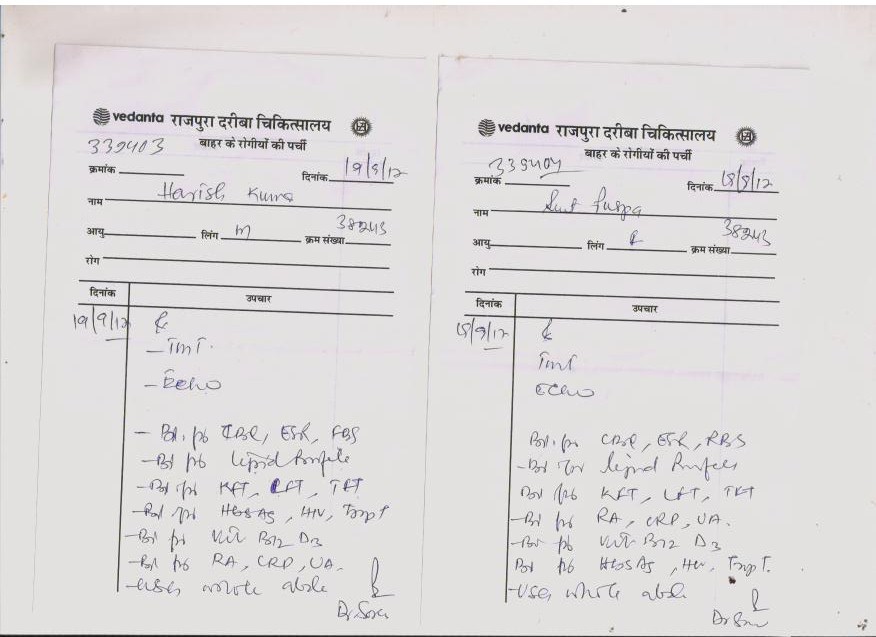 vedanta राजपुरा दरीबा चिकित्सालय
बाहर के रोगीयों की पर्ची
339403
क्रमांक
दिनांक 19/9/12
नाम Harish Kumar
आयु लिंग m क्रम संख्या 38243
रोग
दिनांक उपचार
19/9/12
- TmT.
- Echo
- Bl. for CBC, ESR, FBS
- Bl for lipid Profile
- Bl for KFT, LFT, TFT
- Bl for HBSAg, HIV, TropT
- Bl for Vit B12 D3
- Bl for RA, CRP, UA.
- USG whole abde
vedanta राजपुरा दरीबा चिकित्सालय
बाहर के रोगीयों की पर्ची
339404
क्रमांक
दिनांक
नाम Smt Puspa
आयु लिंग f क्रम संख्या 38243
रोग
दिनांक उपचार
TmT
ECHO
Bl. for CBC, ESR, RBS
- Bl for lipid Profile
Bl for KFT, LFT, TFT
- Bl for RA, CRP, UA.
- Bl for Vit B12 D3
Bl for HBSAg, HIV, TropT.
- USG whole abde